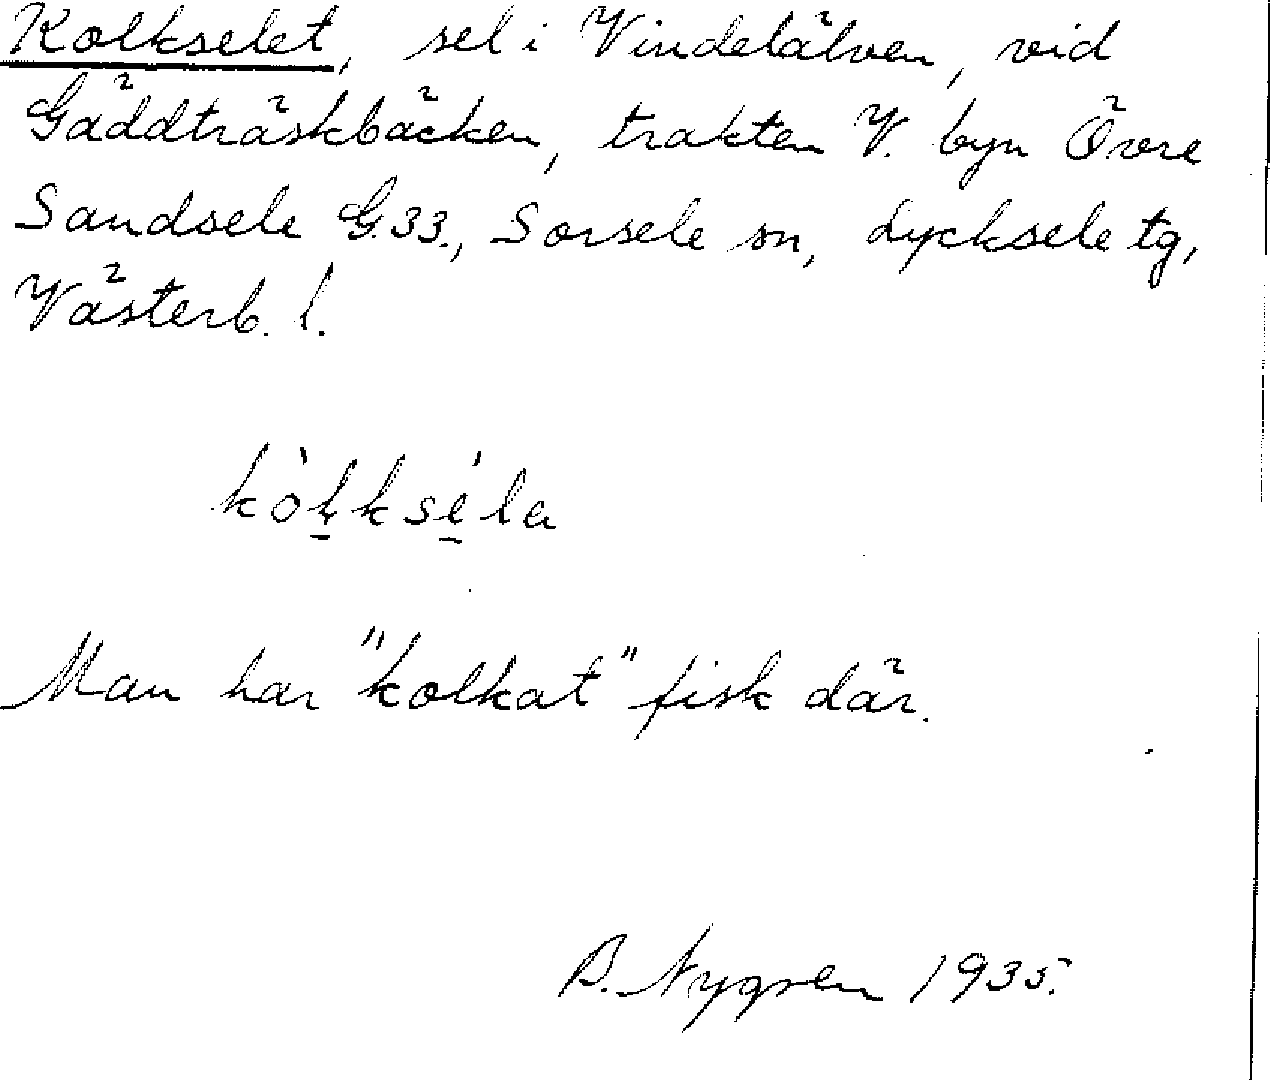 Kolkselet, sel i Vindelälven, vid
Gäddträskbäcken, trakten V. byn Övre
Sandsele G.33., Sorsele sn, Lycksele tg,
Västerb. l.
kòḷkse̱ˊla
Man har "kolkat" fisk där.
B. Nygren 1935.